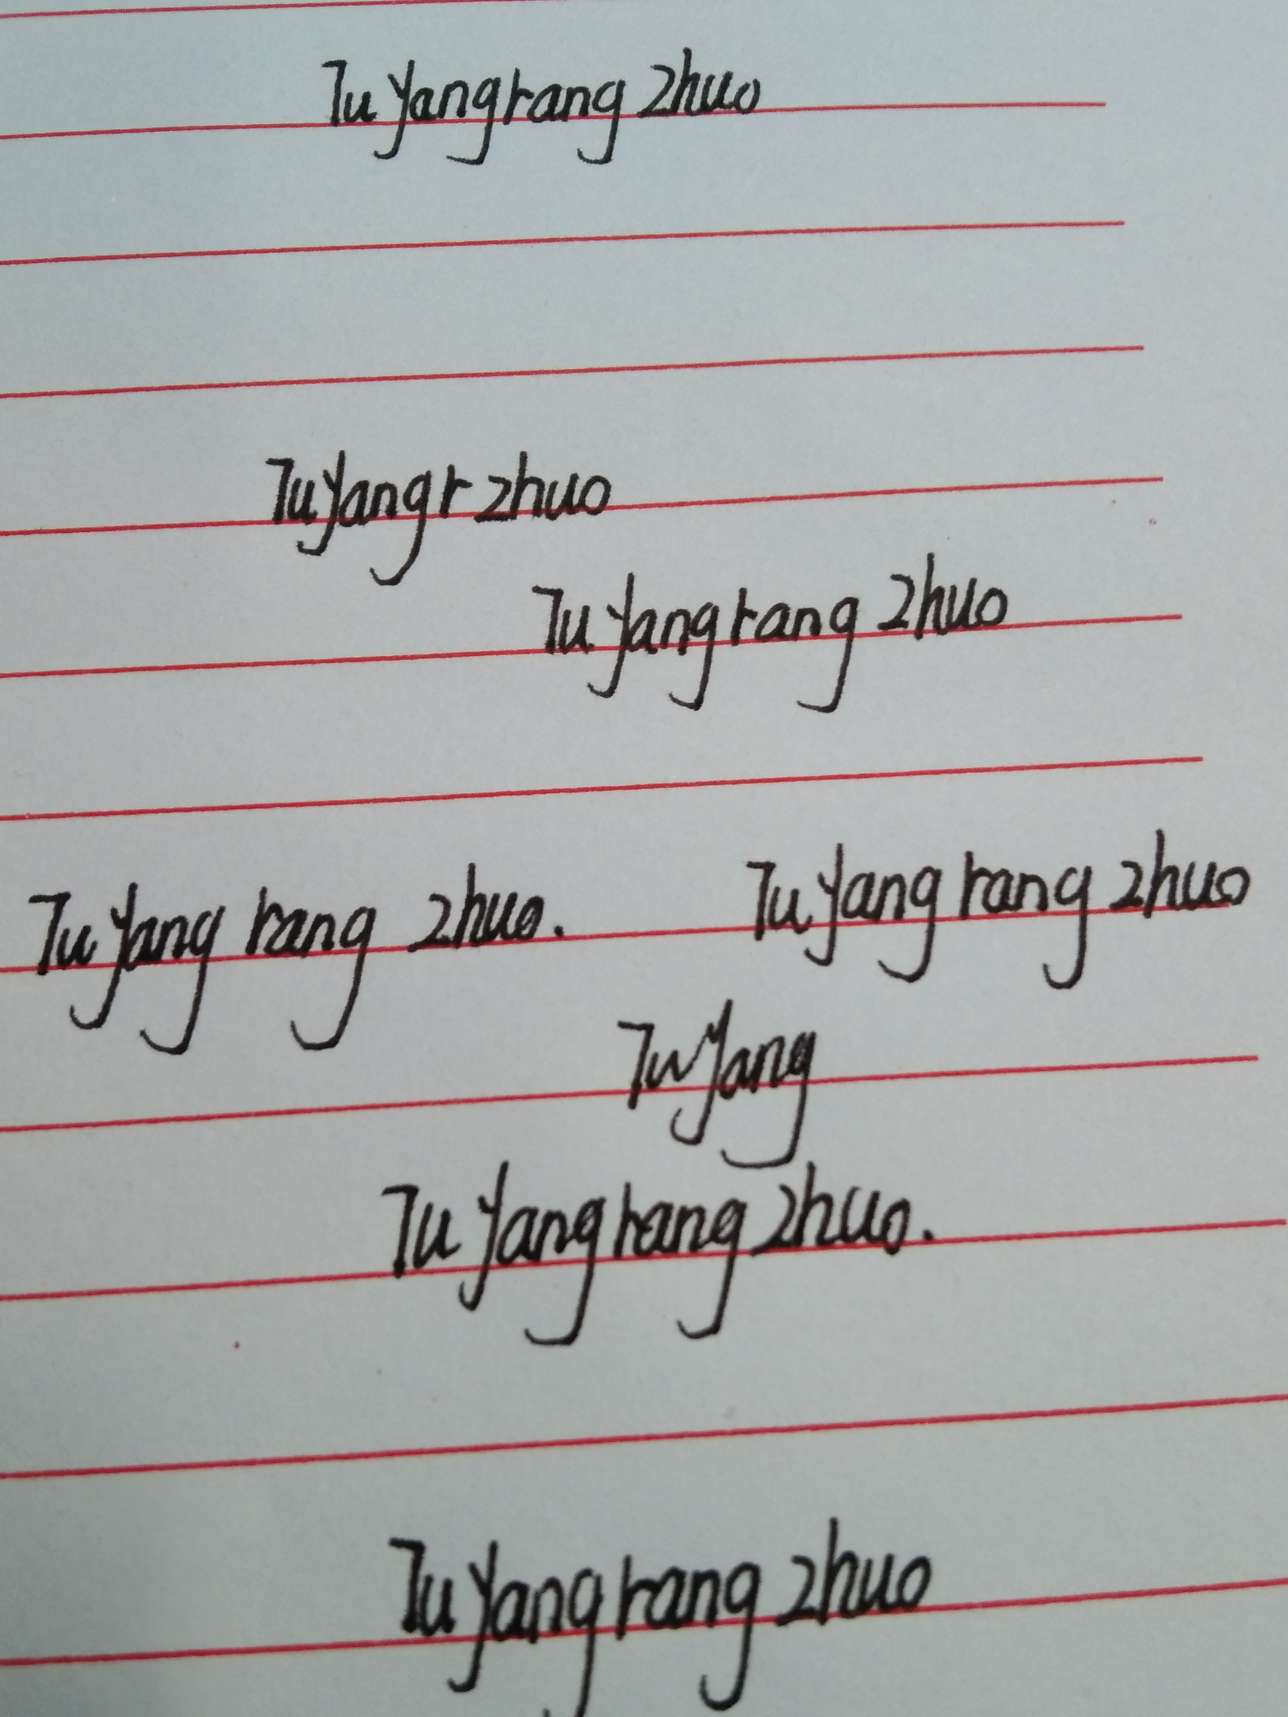 Tu Yangrang Zhuo
TuYangr zhuo
Tu Yangrang Zhuo
Tu Yang rang zhuo. Tu Yang rang zhuo
TuYang
Tu Yangrang zhuo.
Tu Yangrang zhuo